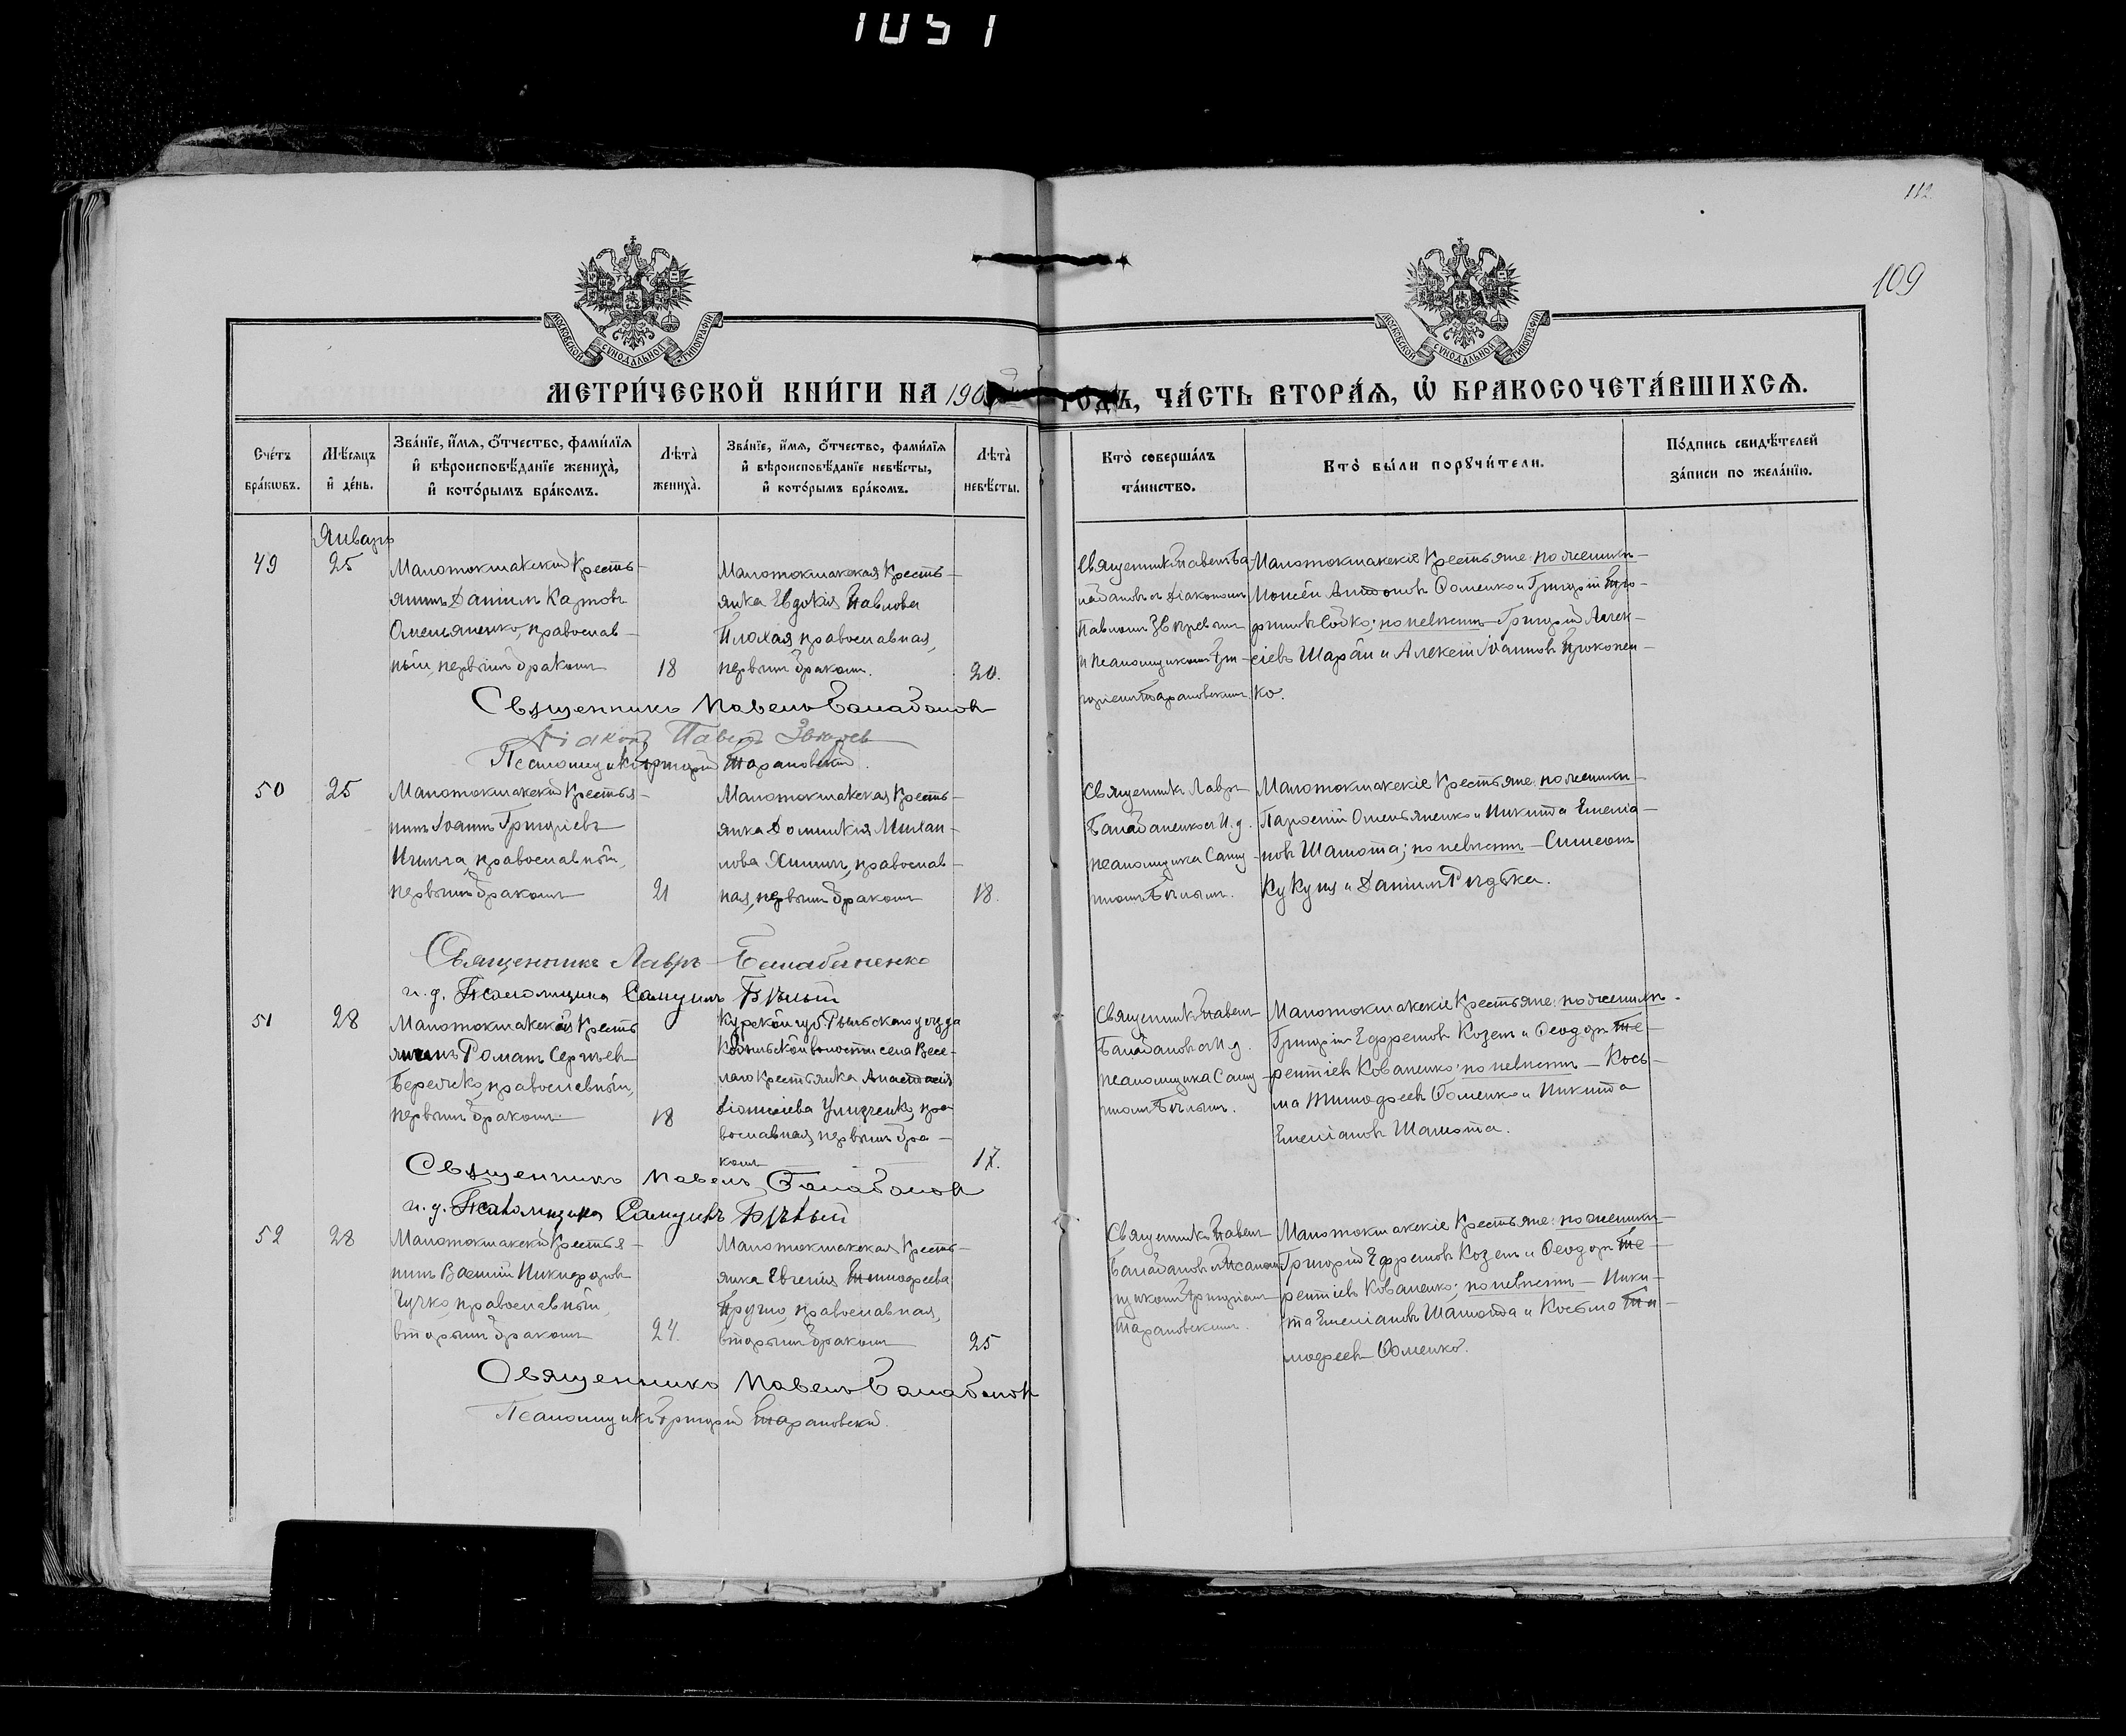 1051
112
109
МОСКОВСКОЙ СУНОДАЛЬНОЙ ТИПОГРАФІИ
МОСКОВСКОЙ СУНОДАЛЬНОЙ ТИПОГРАФІИ
МЕТРИ́ЧЕСКОЙ КНИ́ГИ НА 190
ГОДЪ, ЧА́СТЬ ВТОРА́Ѧ, Ѽ БРАКОСОЧЕТА́ВШИХСѦ.
Сче́тъ бра́кѡвъ.
Мѣ́сяцъ и҆ де́нь.
Зва́нїе, и҆́мѧ, ѻ҆́тчество, фами́лїѧ и҆ вѣроисповѣ́данїе жениха̀, и҆ кото́рымъ бра́комъ.
Лѣта̀ жениха̀.
Зва́нїе, и҆́мѧ, ѻ҆́тчество, фами́лїѧ и҆ вѣроисповѣ́данїе невѣ́сты, и҆ кото́рымъ бра́комъ.
Лѣта̀ невѣ́сты.
Кто̀ соверша́лъ та́инство.
Кто̀ бы́ли порꙋчи́тели.
По́дпись свидѣ́телей за́писи по жела́нїю.
Январь
49
25
Малотокмакскій Кресть-
янинъ Даніилъ Карповъ
Омельяненко, православ-
ный, первымъ бракомъ
18
Малотокмакская Кресть-
янка Евдокія Павлова
Плохая, православная,
первымъ бракомъ.
20.
Священникъ Павелъ Ба
лабановъ съ Діакономъ
Павломъ Звѣревымъ
и псаломщикомъ Гри-
горіемъ Тарановскимъ.
Малотокмакскіе Крестьяне: по женихѣ-
Моисей Антоновъ Фоменко и Григорій Тро-
фимовъ Бойко; по невѣстѣ- Григорій Алек-
сіевъ Шарай и Алексій Іоанновъ Прокопен-
ко.
Священникъ Павелъ Балабановъ
Діаконъ Павелъ Звѣревъ
Псаломщикъ Григорій Тарановскій.
50
25
Малотокмакскій Крестья-
нинъ Іоаннъ Григоріевъ
православный,
первымъ бракомъ
21
Малотокмакская Кресть-
янка Домникія Михаи-
лова православ-
ная, первымъ бракомъ
18.
Священникъ Лавръ
Балабаненко съ И. д.
псаломщика Саму-
иломъ Бѣлымъ.
Малотокмакскіе Крестьяне: по женихѣ-
Парѳеній Омельяненко и Никита Емеліа-
новъ Шамота; по невѣстѣ- Симеонъ
Кукуля и Даніилъ Рѣдька.
Священникъ Лавръ Балабаненко
и. д. Псаломщика Самуилъ Бѣлый
51
28
Малотокмакскій Кресть
янинъ Романъ Сергѣевъ
православный,
первымъ бракомъ.
18
Курской губ. Рыльскаго уѣзда
волости села Весе-
лаго Крестьянка Анастасія
пра
вославная, первымъ бра-
комъ
17.
Священникъ Павелъ
Балабановъ съ И. д.
псаломщика Саму-
иломъ Бѣлымъ.
Малотокмакскіе Крестьяне: по женихѣ-
Григорій Ефремовъ Козелъ и Ѳеодоръ Те-
рентіевъ Коваленко; по невѣстѣ- Кось-
ма Тимоѳеевъ Фоменко и Никита
Емеліановъ Шамота.
Священникъ Павелъ Балабановъ
и. д. Псаломщика Самуилъ Бѣлый
52
28
Малотокмакскій Крестья-
нинъ Василій Никифоровъ
Гучко, православный,
вторымъ бракомъ
24.
Малотокмакская Кресть-
янка Евгенія Тимоѳеева
православная,
вторымъ бракомъ
25
Священникъ Павелъ
Балабановъ съ Псалом
щикомъ Григоріемъ
Тарановскимъ.
Малотокмакскіе Крестьяне: по женихѣ-
Григорій Ефремовъ Козелъ и Ѳеодоръ Те-
рентіевъ Коваленко; по невѣстѣ- Ники-
та Емеліановъ Шамота и Косьма Ти-
моѳеевъ Фоменко.
Священникъ Павелъ Балабановъ
Псаломщикъ Григорій Тарановскій.